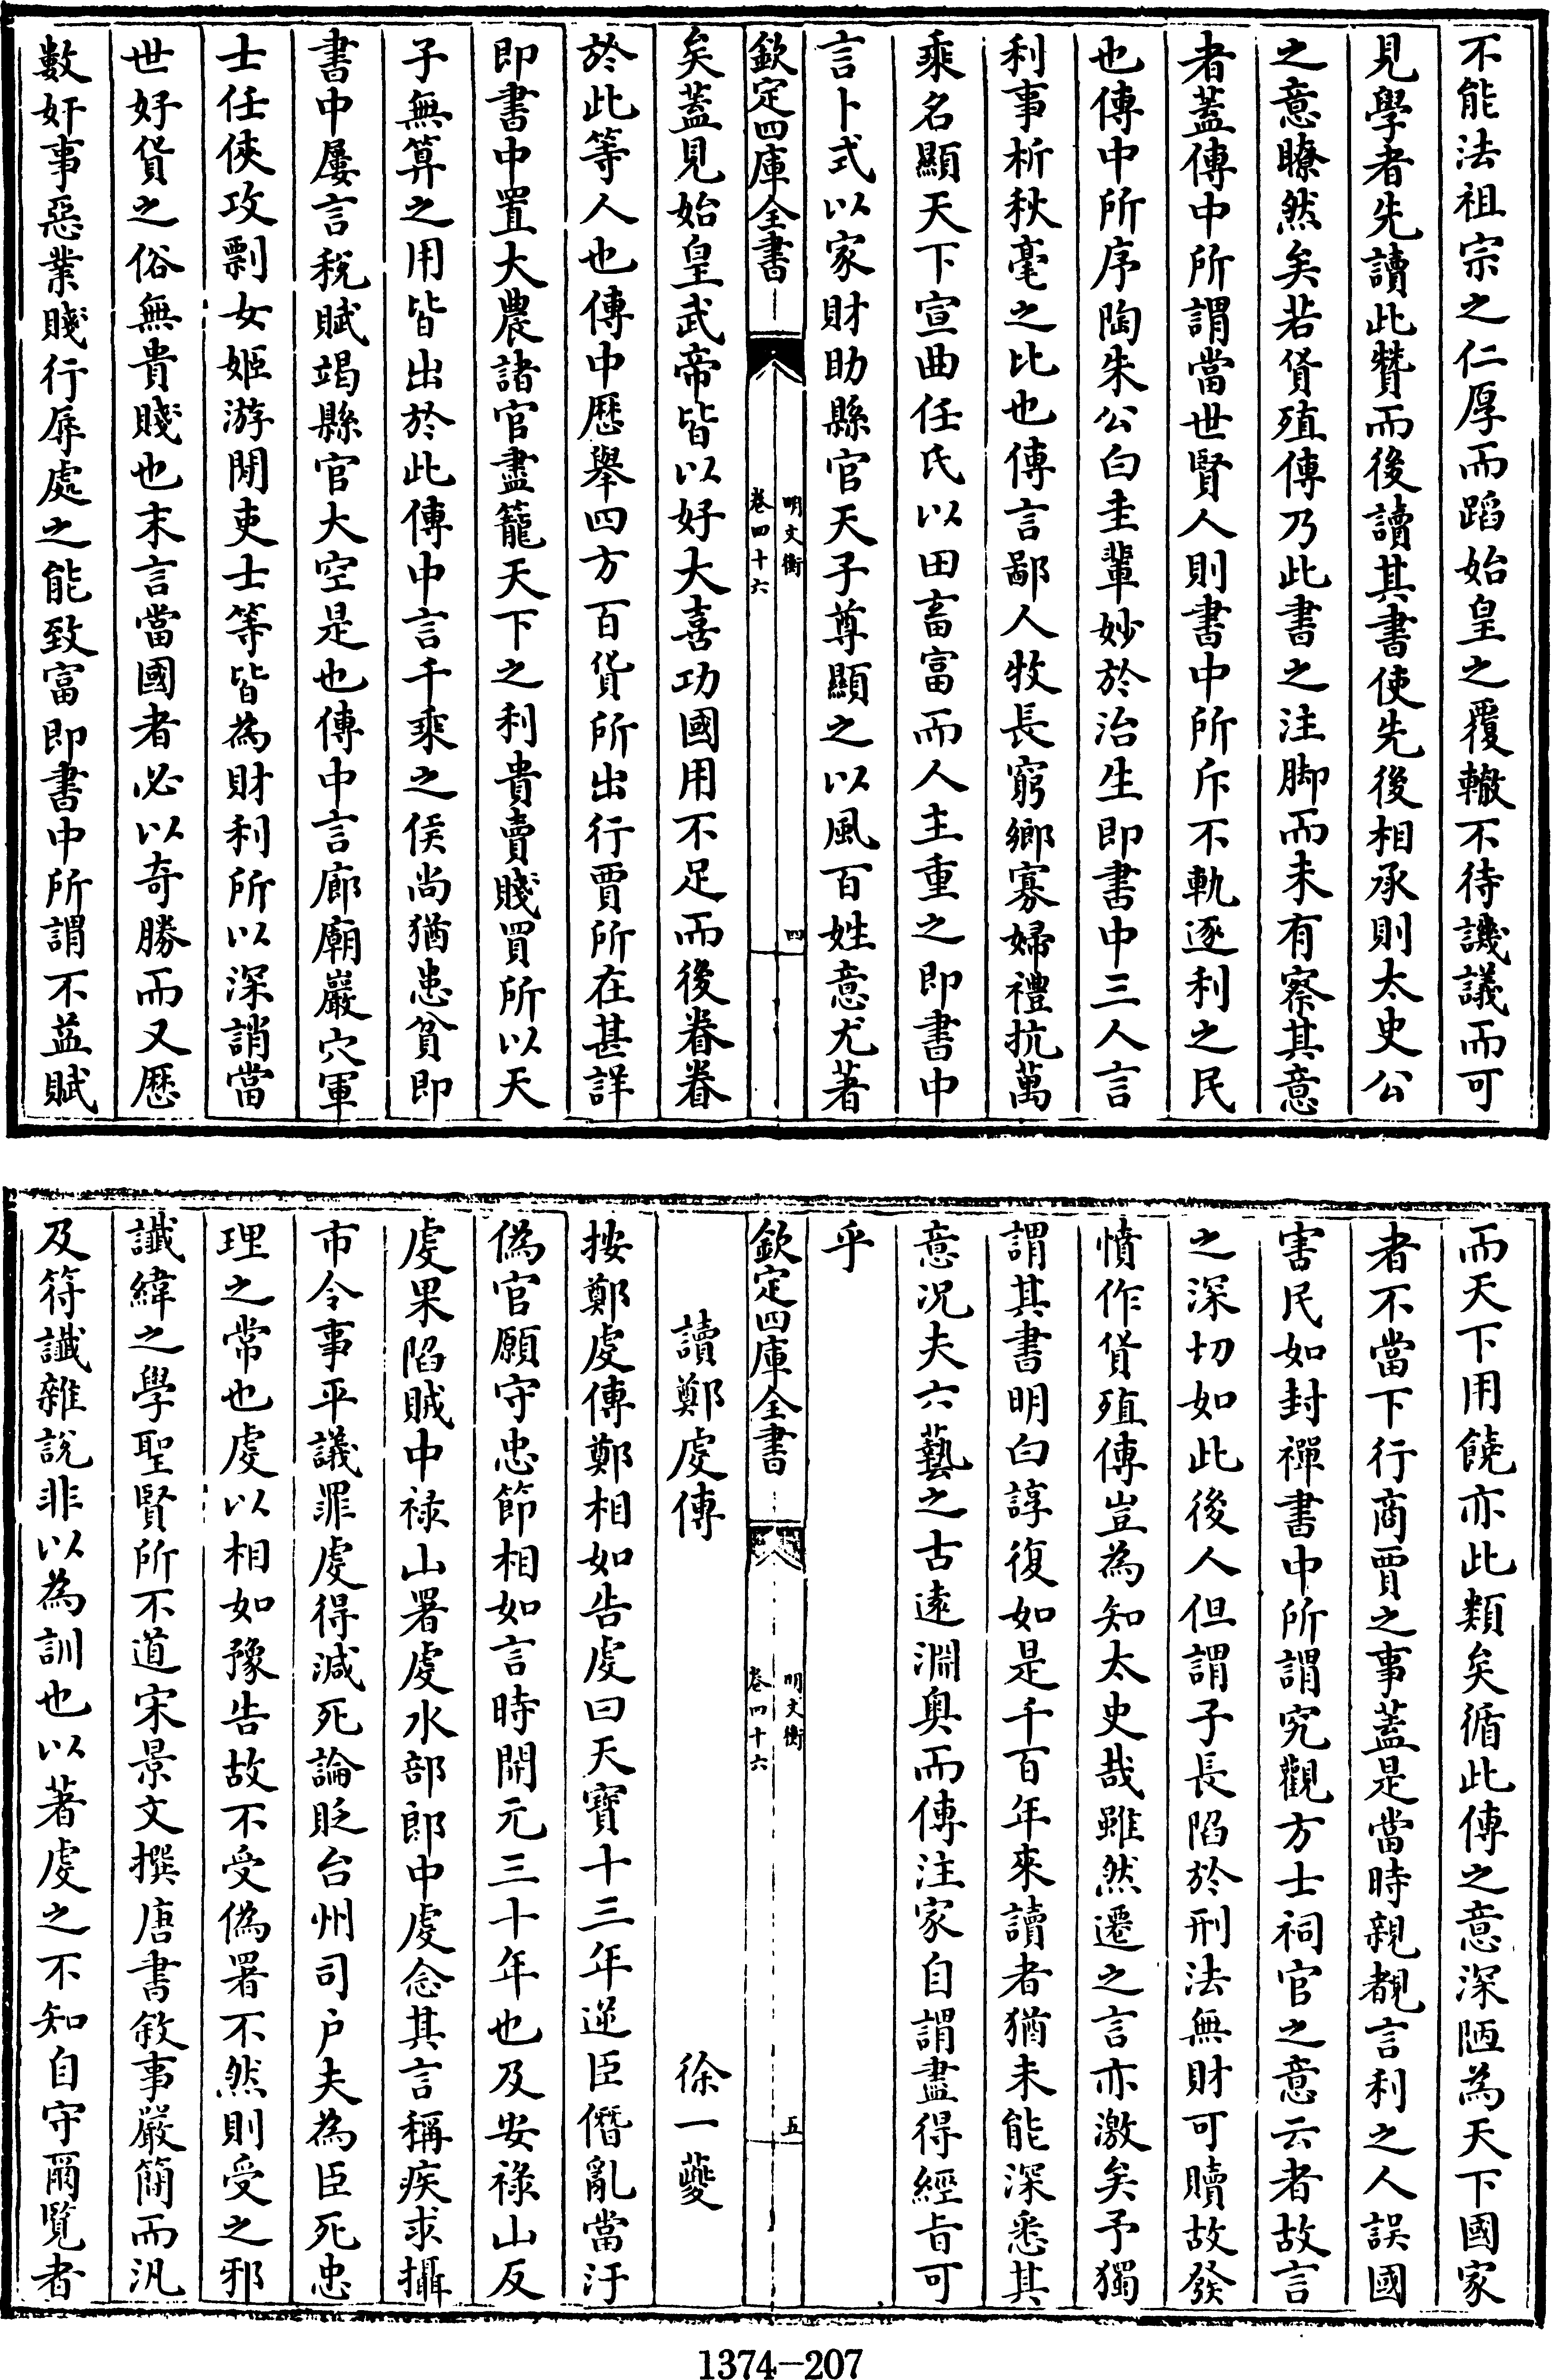 不能法祖宗之仁厚而蹈始皇之覆轍不待譏議而可
見學者先讀此贊而後讀其書使先後相承則太史公
之意瞭然矣若貨殖傳乃此書之注脚而未有察其意
者蓋傳中所謂當世賢人則書中所斥不軌逐利之民
也傳中所序陶朱公白圭輩妙於治生即書中三人言
利事析秋毫之比也傳言鄙人牧長窮鄉寡婦禮抗萬
乘名顯天下宣曲任氏以田畜富而人主重之即書中
言卜式以家財助縣官天子尊顯之以風百姓意尤著
欽定四庫全書
明文衡
卷四十六
四
矣蓋見始皇武帝皆以好大喜功國用不足而後眷眷
於此等人也傳中歷舉四方百貨所出行賈所在甚詳
即書中置大農諸官盡籠天下之利貴賣賤買所以天
子無算之用皆出於此傳中言千乘之侯尚猶患貧即
書中屢言稅賦竭縣官大空是也傳中言廊廟巖穴軍
士任俠攻剽女姬游閒吏士等皆為財利所以深誚當
世好貨之俗無貴賤也末言當國者必以奇勝而又歷
數奸事惡業賤行辱處之能致富即書中所謂不益賦
而天下用饒亦此類矣循此傳之意深陋為天下國家
者不當下行商賈之事蓋是當時親覩言利之人誤國
害民如封禪書中所謂究觀方士祠官之意云者故言
之深切如此後人但謂子長陷於刑法無財可贖故發
憤作貨殖傳豈為知太史哉雖然遷之言亦激矣予獨
謂其書明白諄復如是千百年來讀者猶未能深悉其
意况夫六藝之古遠淵奧而傳注家自謂盡得經旨可
乎
欽定四庫全書
明文衡
卷四十六
五
讀鄭虔傳　徐一夔
按鄭虔傳鄭相如告虔曰天寶十三年逆臣僭亂當汙
偽官願守忠節相如言時開元三十年也及安祿山反
虔果陷賊中祿山署虔水部郎中虔念其言稱疾求攝
市令事平議罪虔得減死論貶台州司户夫為臣死忠
理之常也虔以相如豫告故不受偽署不然則受之邪
讖緯之學聖賢所不道宋景文撰唐書敘事嚴簡而汎
及符讖雜說非以為訓也以著虔之不知自守爾覽者
1374—207